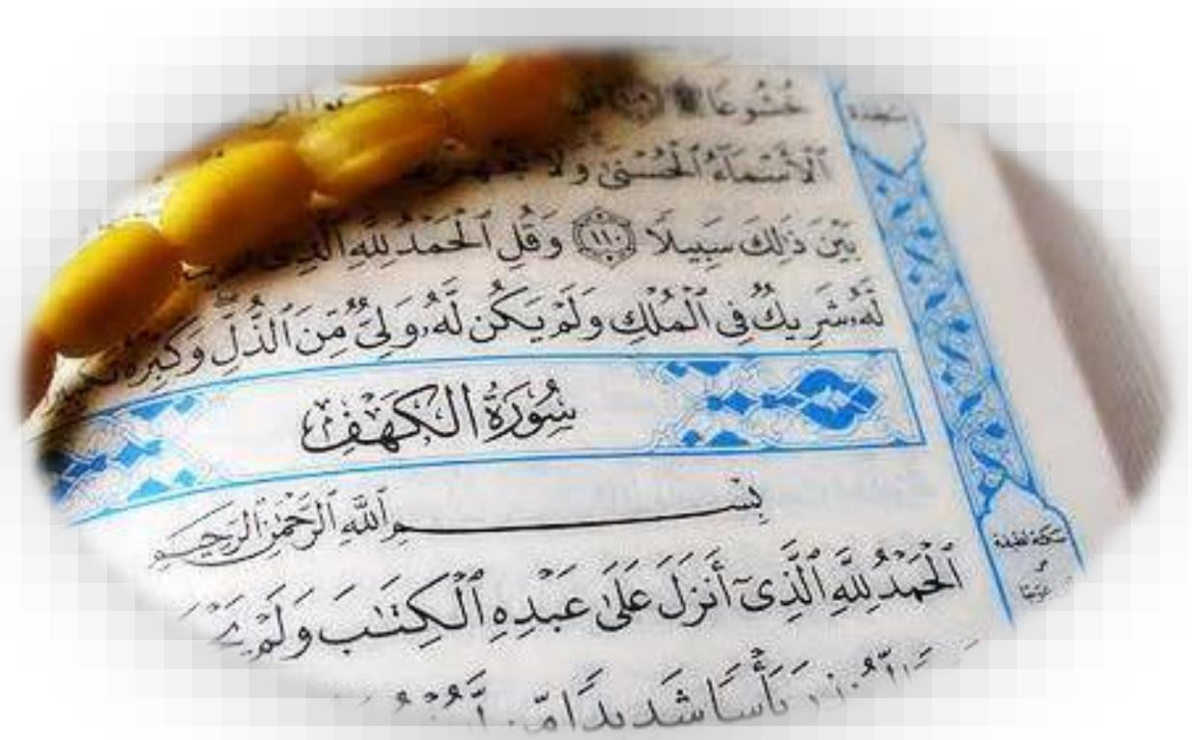 خُشُوعًا
ٱلْأَسْمَآءُ ٱلْحُسْنَىٰ وَلَا تَجْهَرْ
بَيْنَ ذَٰلِكَ سَبِيلًا ١١٠ وَقُلِ ٱلْحَمْدُ لِلَّهِ ٱلَّذِى
لَّهُۥ شَرِيكٌ فِى ٱلْمُلْكِ وَلَمْ يَكُن لَّهُۥ وَلِىٌّ مِّنَ ٱلذُّلِّ وَكَبِّرْهُ
سُورَةُ الكَهْفِ
بِسْمِ ٱللَّهِ ٱلرَّحْمَٰنِ ٱلرَّحِيمِ
ٱلْحَمْدُ لِلَّهِ ٱلَّذِىٓ أَنزَلَ عَلَىٰ عَبْدِهِ ٱلْكِتَٰبَ وَلَمْ
بَأْسًا شَدِيدًا مِّن
سَجدة
سَكتة لطيفة
عِوَجًا